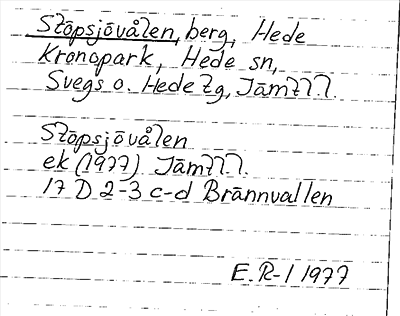 Stöpsjövålen, berg, Hede
Kronopark, Hede sn,
Svegs o. Hede tg, Jämtl l.
Stöpsjövålen
ek (1977) Jämtl l.
17 D 2-3 c-d Brännvallen
E. R-l 1977